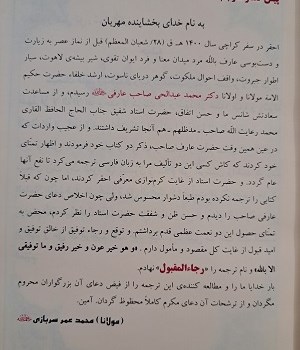 به نام خدای بخشاینده مهربان
احقر در سفر کراچی سال ۱۴۰۰ هـ ق (۲۸/ شعبان المعظم) قبل از نماز عصر به زیارت
و دست‌بوسی عارف بالله مرد میدان معنا و فرد ایوان تقوی، شیر بیشه‌ی لاهوت، سیار
اطوار جبروت، واقف احوال ملکوت، گوهر دریای ناسوت، ارشد خلفاء حضرت حکیم
الامة مولانا و اولانا دکتر محمد عبدالحی صاحب عارفی رسیدم، و از مساعدت
سعادتش شانس ما و حسن اتفاق، حضرت استاد شفیق جناب الحاج الحافظ القاری
محمد رعایت الله صاحب ـ مدظلهم ـ هم آنجا تشریف داشتند. و از عجیب واردات که
در عین همین وقت حضرت عارف صاحب، ذکر دو کتاب خود فرمودند و اظهار تمنّای
خود کردند که کاش کسی این دو تألیف مرا به زبان فارسی ترجمه می‌کرد تا نفع آنها
عام گردد. و حضرت استاد از غایت کرم‌نوازی معرّفی احقر فرمودند، اما چون که قبلا
کتابی را ترجمه نکرده بودم طبعاً دشوار محسوس شد، ولی چون اخلاص دعای حضرت
عارفی صاحب را دیدم و حسن ظن و شفقت حضرت استاد را نظر کردم، محض به
تمنّای حصول این دو نعمت عظمی قدم برداشتم. و توقع و رجاء توفیق از خالق توفیق و
امید قبول از غایت کل مقصود و مأمول دارم. «و هو خیر عون و خیر رفیق و ما توفیقی
الا بالله» و نام ترجمه را «رجاء المقبول» نهادم.
بار خدایا ما را و مطالعه کننده‌ی این ترجمه را از فیض دعای آن بزرگواران محروم
مگردان و از ترشحات آن دعای مکرم کاملاً محظوظ گردان. آمین.
(مولانا) محمد عمر سربازی